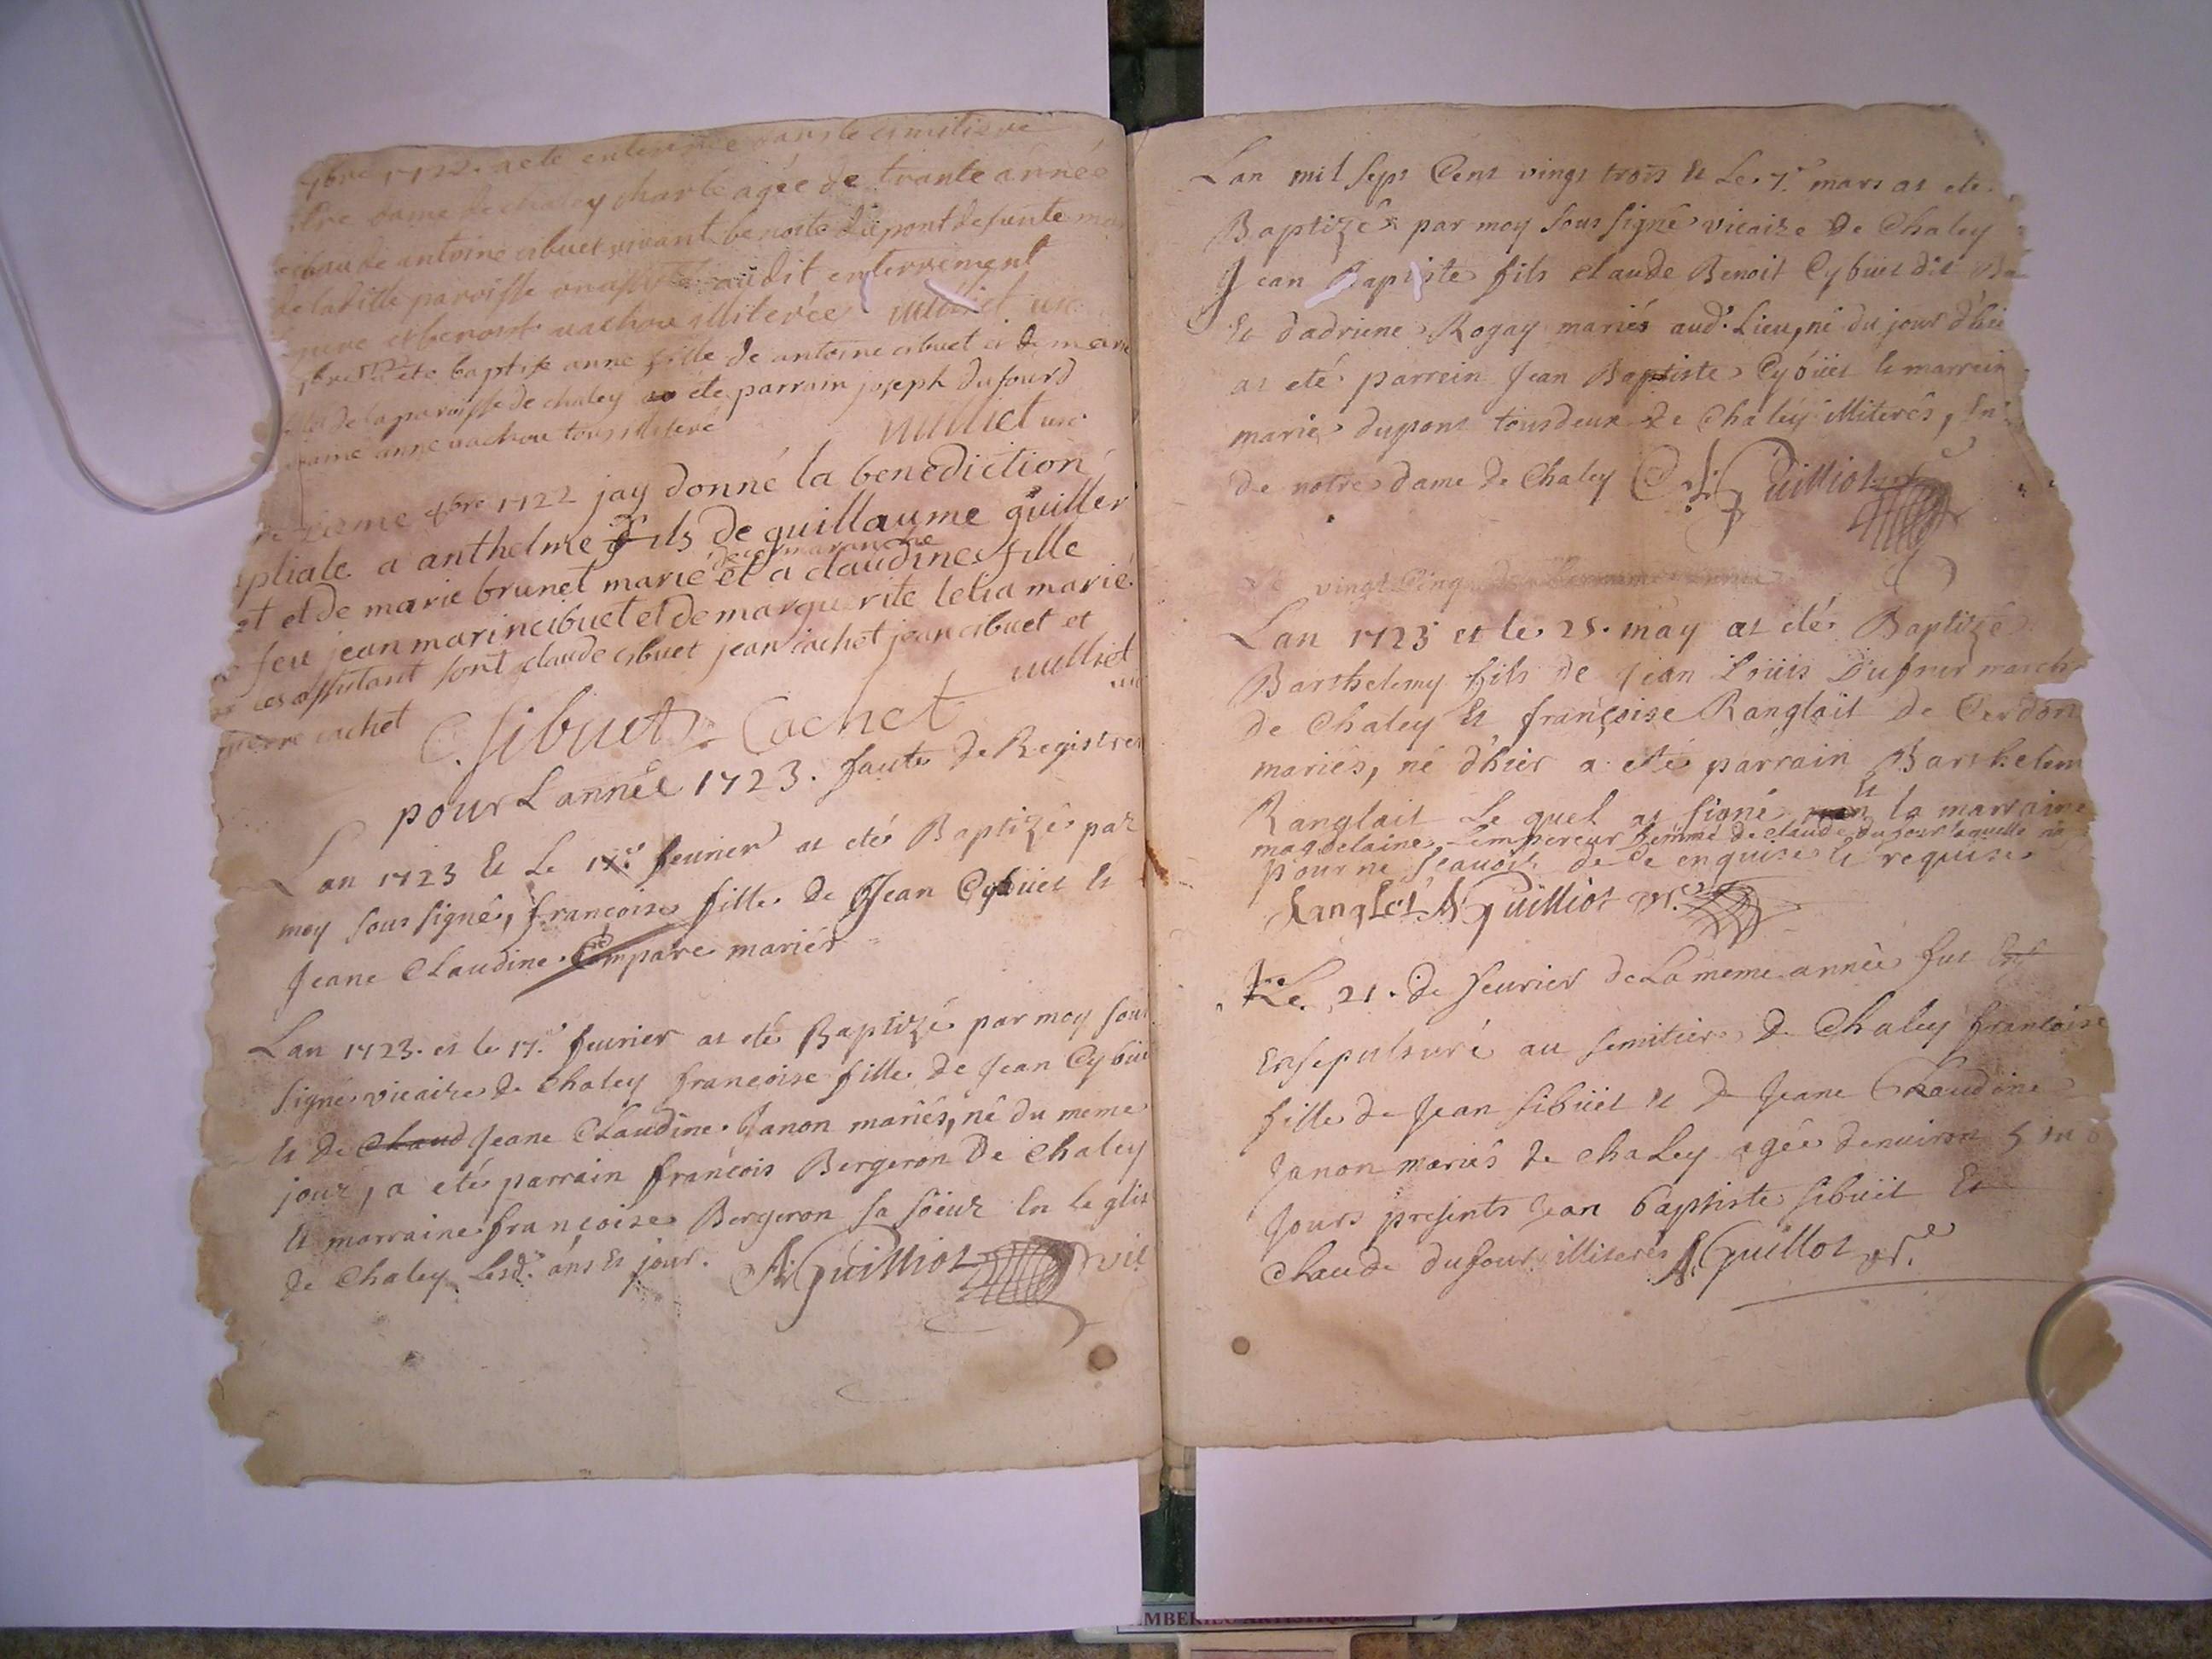 1722. a ete enterrée dans le cimitiere
dame de chaley agée de trante année
antoine cibuet vivant benoite dupont defunte
de la ditte paroisse audit enterrement
et benoit vachou illiterée vulliet vic
ete baptise anne fille de antoine cibuet et de marie
de la paroisse de chaley ete parrain joseph dufourd
anne vachou tous illiteré vulliet vic
1722 jay donné la benediction
ptiale a anthelme fils de guillaume guiller
et et de marie brunet marié et a claudine fille
feu jean marin cibuet et de marguerite marié
les assistant sont claude cibuet jean cachet jean cibuet et
pierre cachet vulliet
C. Sibuet Cachet
pour L'année 1723. faute de Registre
Lan 1723 Et Le fevrier at eté Baptizé par
moy sous signé, françoise fille de Jean Cybuet Et
Jeane Claudine Compare mariés
Lan 1723. et le 17.e fevrier at eté Baptizé par moy sous
signé vicaire de Chaley francoise fille de Jean Cybüe
Et De Claud Jeane Claudine Janon mariés, né du meme
jour, a eté parrain francois Bergeron De Chaley
Et marraine françoise Bergeron sa soeur En leglis
de Chaley Lesd. ans Et jour. Guilliot vic
Lan mil sept Cent vingt trois Et Le 7.e mars at ete
Baptizé par moy sous signé vicaire De Chaley
Jean Baptiste fils Claude Benoit Cybuet dit
Et d'adriene Rogay mariés aud.t Lieu, né du jour d'hie
at eté parrein Jean Baptiste Cybüet le marrein
marie dupont tous deux De Chaley illiterés, En
de notre dame de Chaley Guilliot
vingt Cinq
Lan 1723 et le 25. may at eté Baptizé
Barthelemy fils de Jean Loüis Dufour march
de Chaley Et françoise Ranglait de Cerdon
mariés, né d'hier a eté parrain Barthelem
Ranglait Le quel at signé Et la marraine
magdelaine Lempereur femme de claude dufour laquelle na
pour ne scavoir de ce enquise Et requise
Ranglet Guilliot
Le 21. de fevrier de La meme année fut
Ensepulturé au semitiere De Chaley francoise
fille de Jean sibüet Et De Jeane Claudine
Janon mariés de chaLey agée denviron 5
Jours presents Jean baptiste sibüet Et
Claude dufour illiterés Guilliot